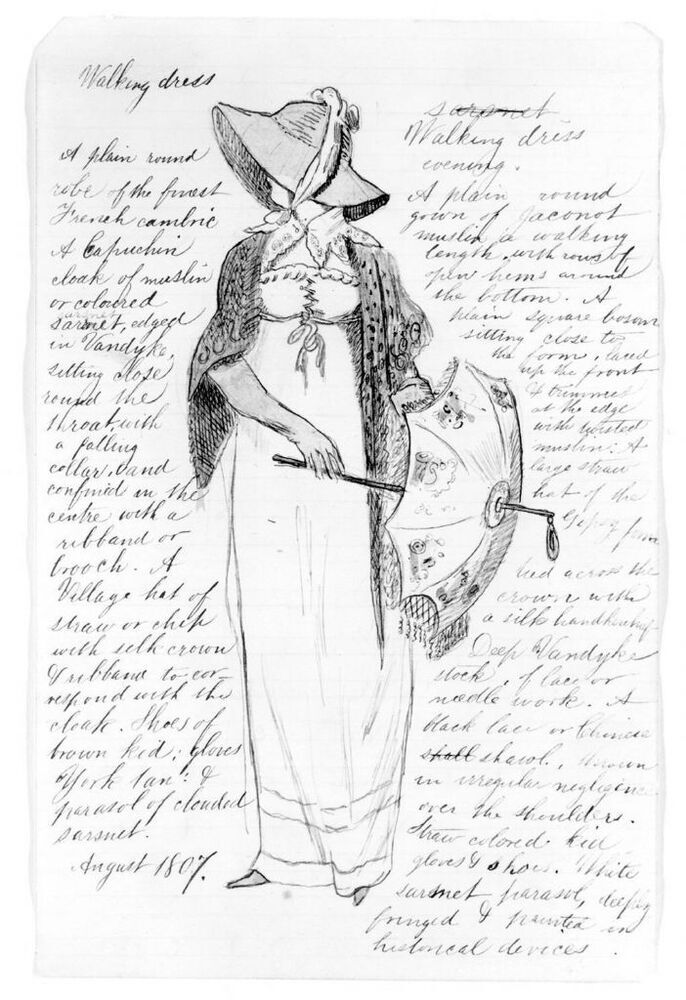 Walking dress
A plain round
robe of the finest
French cambric
A Capuchin
cloak of muslin
or coloured
sarsnet, edged
in Vandyke,
sitting close
round the
throat, with
a falling
collar, and
confined in the
centre with a
ribband or
brooch. A
Village hat of
straw or chip
with silk crown
& ribband to cor-
respond with the
cloak. Shoes of
brown kid; gloves
York tan: &
parasol of clouded
sarsnet.
August 1807.
sarsnet
Walking dress
evening.
A plain round
gown of Jaconot
muslin, a walking
length, with rows of
open hems around
the bottom. A
plain square bosom
sitting close to
the form, laced
up the front
& trimmed
at the edge
with twisted
muslin: A
large straw
hat of the
Gipsy form
tied across the
crown with
a silk handkerchief
Deep Vandyke
stock, of lace or
needle work. A
black lace or Chinese
shall shawl, thrown
in irregular negligence
over the shoulders.
Straw colored kid
gloves & shoes. White
sarsnet parasol, deeply
fringed & painted in
historical devices.